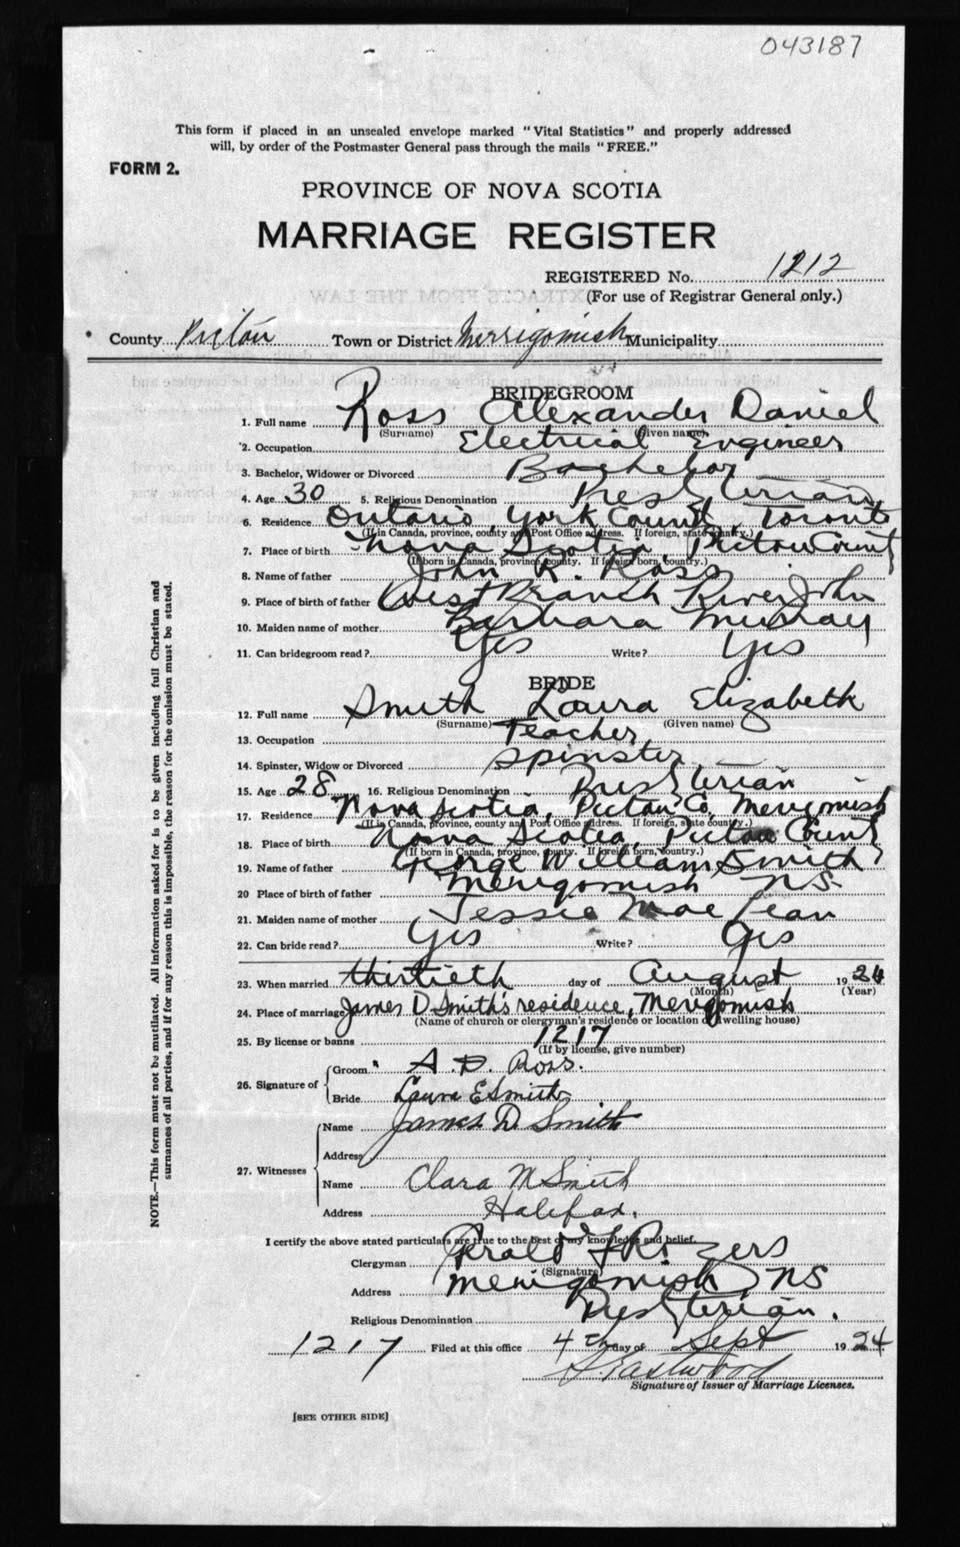 043187
This form if placed in an unsealed envelope marked "Vital Statistics" and properly addressed
will, by order of the Postmaster General pass through the mails "FREE."
FORM 2.
PROVINCE OF NOVA SCOTIA
MARRIAGE REGISTER
REGISTERED No. 1212
(For use of Registrar General only.)
County Pictou Town or District Merrigomish Municipality
BRIDEGROOM
1. Full name Ross Alexander Daniel
(Surname) (Given name)
2. Occupation Electrical Engineer
3. Bachelor, Widower or Divorced Bachelor
4. Age 30 5. Religious Denomination Presbyterian
6. Residence Ontario, York County, Toronto
(If in Canada, province, county and Post Office address. If foreign, state country.)
7. Place of birth Nova Scotia, Pictou County
(If born in Canada, province, county. If foreign born, country.)
8. Name of father John R. Ross
9. Place of birth of father West Branch River John
10. Maiden name of mother Barbara Murray
11. Can bridegroom read? Yes Write? Yes
BRIDE
12. Full name Smith Laura Elizabeth
(Surname) (Given name)
13. Occupation Teacher
14. Spinster, Widow or Divorced Spinster
15. Age 28 16. Religious Denomination Presbyterian
17. Residence Nova Scotia, Pictou Co, Merigomish
(If in Canada, province, county and Post Office address. If foreign, state country.)
18. Place of birth Nova Scotia, Pictou County
(If born in Canada, province, county. If foreign born, country.)
19. Name of father George William Smith
20 Place of birth of father Merigomish NS.
21. Maiden name of mother Jessie MacLean
22. Can bride read? Yes Write? Yes
23. When married thirtieth day of August 1924
(Month) (Year)
24. Place of marriage James D Smith's residence, Merigomish
(Name of church or clergyman's residence or location of dwelling house)
25. By license or banns 1217
(If by license, give number)
26. Signature of Groom A. D. Ross.
Bride Laura E Smith
27. Witnesses Name James D Smith
Address
Name Clara M Smith
Address Halifax.
I certify the above stated particulars are true to the best of my knowledge and belief.
Clergyman Gerald F Rogers
(Signature)
Address Merigomish NS
Religious Denomination Presbyterian.
1217 Filed at this office 4th day of Sept 1924
Eastwood
Signature of Issuer of Marriage Licenses.
[SEE OTHER SIDE]
NOTE.—This form must not be mutilated. All information asked for is to be given including full Christian and
surnames of all parties, and if for any reason this is impossible, the reason for the omission must be stated.